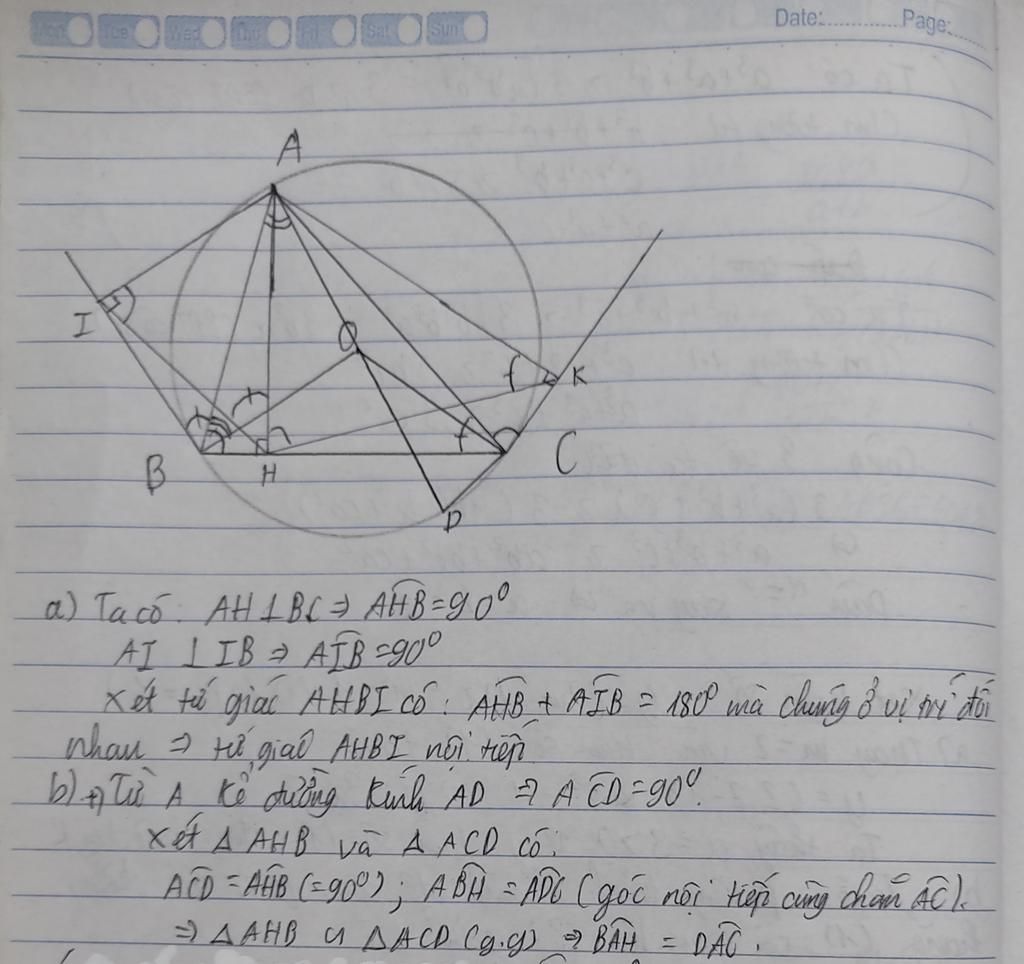 Mon Tue Wed Thu Fri Sat Sun Date: Page:
A
I
O
K
B H C
D
a) Ta có: AH ⊥ BC ⇒ AHB = 90⁰
AI ⊥ IB ⇒ AIB = 90⁰
Xét tứ giác AHBI có: AHB + AIB = 180⁰ mà chúng ở vị trí đối
nhau ⇒ tứ giác AHBI nội tiếp
b) +) Từ A kẻ đường kính AD ⇒ ACD = 90⁰.
Xét Δ AHB và Δ ACD có:
ACD = AHB (= 90⁰); ABH = ADC (góc nội tiếp cùng chắn AC).
⇒ Δ AHB ∽ Δ ACD (g.g) ⇒ BAH = DAC.